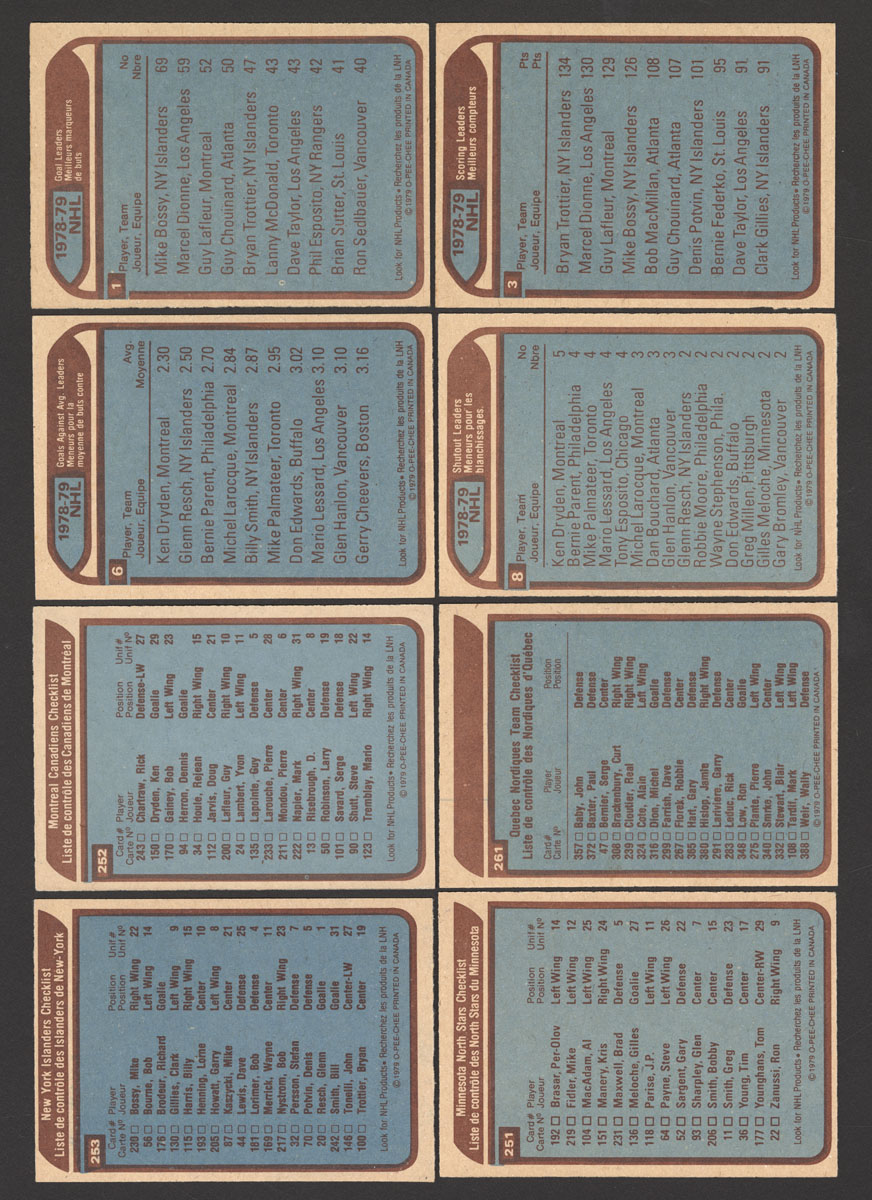 1
1978-79
NHL
Goal Leaders
Meilleurs marqueurs
de buts
Player, Team No
Joueur, Equipe Nbre
Mike Bossy, NY Islanders 69
Marcel Dionne, Los Angeles 59
Guy Lafleur, Montreal 52
Guy Chouinard, Atlanta 50
Bryan Trottier, NY Islanders 47
Lanny McDonald, Toronto 43
Dave Taylor, Los Angeles 43
Phil Esposito, NY Rangers 42
Brian Sutter, St. Louis 41
Ron Sedlbauer, Vancouver 40
Look for NHL Products • Recherchez les produits de la LNH
© 1979 O-PEE-CHEE PRINTED IN CANADA
3
1978-79
NHL
Scoring Leaders
Meilleurs compteurs
Player, Team Pts
Joueur, Equipe Pts
Bryan Trottier, NY Islanders 134
Marcel Dionne, Los Angeles 130
Guy Lafleur, Montreal 129
Mike Bossy, NY Islanders 126
Bob MacMillan, Atlanta 108
Guy Chouinard, Atlanta 107
Denis Potvin, NY Islanders 101
Bernie Federko, St. Louis 95
Dave Taylor, Los Angeles 91
Clark Gillies, NY Islanders 91
Look for NHL Products • Recherchez les produits de la LNH
© 1979 O-PEE-CHEE PRINTED IN CANADA
6
1978-79
NHL
Goals Against Avg. Leaders
Meneurs pour la
moyenne de buts contre
Player, Team Avg.
Joueur, Equipe Moyenne
Ken Dryden, Montreal 2.30
Glenn Resch, NY Islanders 2.50
Bernie Parent, Philadelphia 2.70
Michel Larocque, Montreal 2.84
Billy Smith, NY Islanders 2.87
Mike Palmateer, Toronto 2.95
Don Edwards, Buffalo 3.02
Mario Lessard, Los Angeles 3.10
Glen Hanlon, Vancouver 3.10
Gerry Cheevers, Boston 3.16
Look for NHL Products • Recherchez les produits de la LNH
© 1979 O-PEE-CHEE PRINTED IN CANADA
8
1978-79
NHL
Shutout Leaders
Meneurs pour les
blanchissages.
Player, Team No
Joueur, Equipe Nbre
Ken Dryden, Montreal 5
Bernie Parent, Philadelphia 4
Mike Palmateer, Toronto 4
Mario Lessard, Los Angeles 4
Tony Esposito, Chicago 4
Michel Larocque, Montreal 3
Dan Bouchard, Atlanta 3
Glen Hanlon, Vancouver 3
Glenn Resch, NY Islanders 2
Robbie Moore, Philadelphia 2
Wayne Stephenson, Phila. 2
Don Edwards, Buffalo 2
Greg Millen, Pittsburgh 2
Gilles Meloche, Minnesota 2
Gary Bromley, Vancouver 2
Look for NHL Products • Recherchez les produits de la LNH
© 1979 O-PEE-CHEE PRINTED IN CANADA
252
Montreal Canadiens Checklist
Liste de contrôle des Canadiens de Montréal
Card # Player Position Unif #
Carte Nº Joueur Position Unif Nº
243 □ Chartraw, Rick Defense-LW 27
150 □ Dryden, Ken Goalie 29
170 □ Gainey, Bob Left Wing 23
94 □ Herron, Dennis Goalie
34 □ Houle, Rejean Right Wing 15
112 □ Jarvis, Doug Center 21
200 □ Lafleur, Guy Right Wing 10
24 □ Lambert, Yvon Left Wing 11
135 □ Lapointe, Guy Defense 5
233 □ Larouche, Pierre Center 28
211 □ Mondou, Pierre Center 6
222 □ Napier, Mark Right Wing 31
13 □ Risebrough, D. Center 8
50 □ Robinson, Larry Defense 19
101 □ Savard, Serge Defense 18
90 □ Shutt, Steve Left Wing 22
123 □ Tremblay, Mario Right Wing 14
Look for NHL Products • Recherchez les produits de la LNH
© 1979 O-PEE-CHEE PRINTED IN CANADA
261
Quebec Nordiques Team Checklist
Liste de contrôle des Nordiques d'Québec
Card # Player Position
Carte Nº Joueur Position
357 □ Baby, John Defense
372 □ Baxter, Paul Defense
47 □ Bernier, Serge Center
308 □ Brackenbury, Curt Right Wing
239 □ Cloutier, Real Right Wing
324 □ Cote, Alain Left Wing
316 □ Dion, Michel Goalie
299 □ Farrish, Dave Defense
267 □ Ftorek, Robbie Center
385 □ Hart, Gary Defense
380 □ Hislop, Jamie Right Wing
291 □ Lariviere, Garry Defense
283 □ Leduc, Rick Center
348 □ Low, Ron Goalie
275 □ Plante, Pierre Left Wing
340 □ Smrke, John Center
332 □ Stewart, Blair Left Wing
108 □ Tardif, Mark Left Wing
388 □ Weir, Wally Defense
© 1979 O-PEE-CHEE PRINTED IN CANADA
253
New York Islanders Checklist
Liste de contrôle des Islanders de New-York
Card # Player Position Unif #
Carte Nº Joueur Position Unif Nº
230 □ Bossy, Mike Right Wing 22
56 □ Bourne, Bob Left Wing 14
176 □ Brodeur, Richard Goalie
130 □ Gillies, Clark Left Wing 9
115 □ Harris, Billy Right Wing 15
193 □ Henning, Lorne Center 10
205 □ Howatt, Garry Left Wing 8
87 □ Kaszycki, Mike Center 21
44 □ Lewis, Dave Defense 25
181 □ Lorimer, Bob Defense 4
169 □ Merrick, Wayne Center 11
217 □ Nystrom, Bob Right Wing 23
32 □ Persson, Stefan Defense 7
70 □ Potvin, Denis Defense 5
20 □ Resch, Glenn Goalie 1
242 □ Smith, Bill Goalie 31
146 □ Tonelli, John Center-LW 27
100 □ Trottier, Bryan Center 19
Look for NHL Products • Recherchez les produits de la LNH
© 1979 O-PEE-CHEE PRINTED IN CANADA
251
Minnesota North Stars Checklist
Liste de contrôle des North Stars du Minnesota
Card # Player Position Unif #
Carte Nº Joueur Position Unif Nº
192 □ Brasar, Per-Olov Left Wing 14
219 □ Fidler, Mike Left Wing 12
104 □ MacAdam, Al Left Wing 25
151 □ Manery, Kris Right Wing 24
231 □ Maxwell, Brad Defense 5
136 □ Meloche, Gilles Goalie 27
118 □ Parise, J.P. Left Wing 11
64 □ Payne, Steve Left Wing 26
52 □ Sargent, Gary Defense 22
93 □ Sharpley, Glen Center 7
206 □ Smith, Bobby Center 15
11 □ Smith, Greg Defense 23
36 □ Young, Tim Center 17
177 □ Younghans, Tom Center-RW 29
22 □ Zanussi, Ron Right Wing 9
Look for NHL Products • Recherchez les produits de la LNH
© 1979 O-PEE-CHEE PRINTED IN CANADA